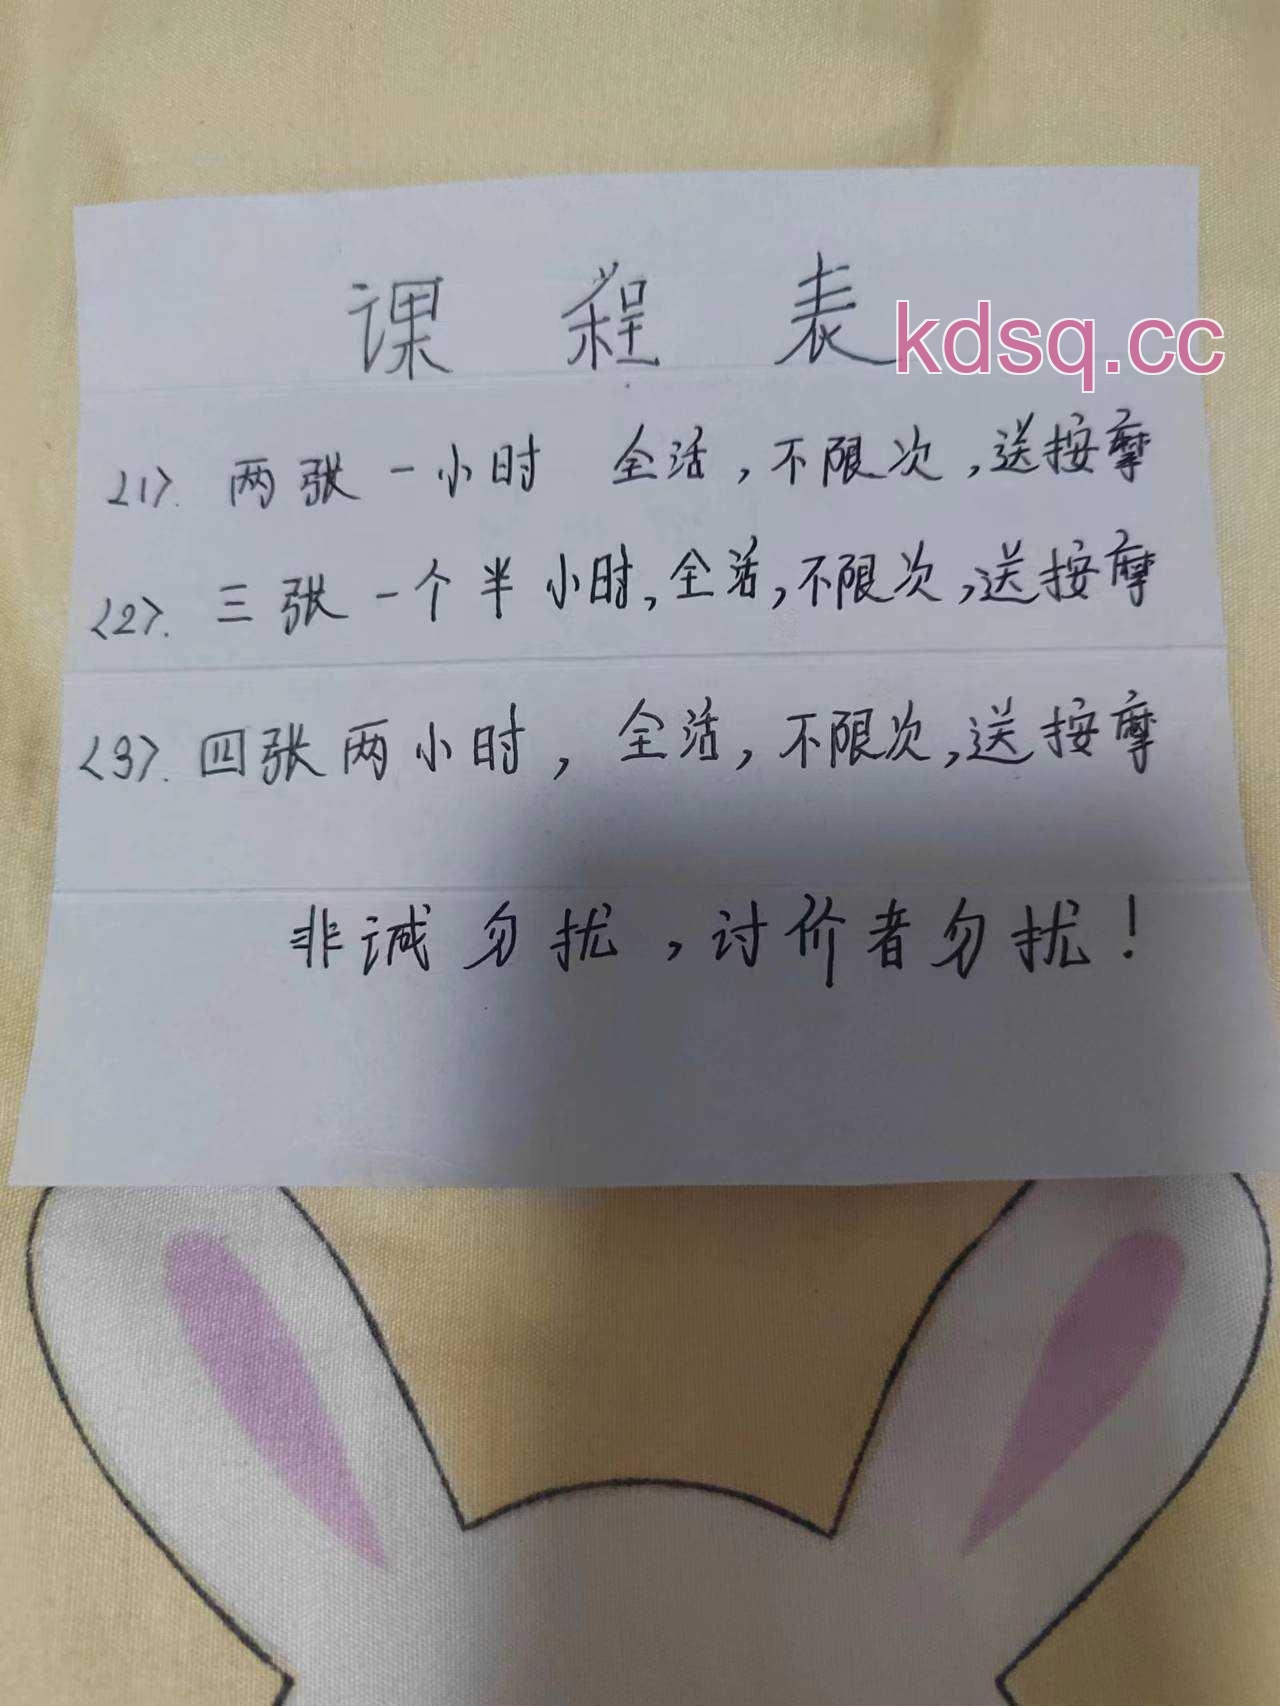 课程表
kdsq.cc
<1>. 两张一小时 全活,不限次,送按摩
<2>. 三张一个半小时,全活,不限次,送按摩
<3>. 四张两小时,全活,不限次,送按摩
非诚勿扰,讨价者勿扰!